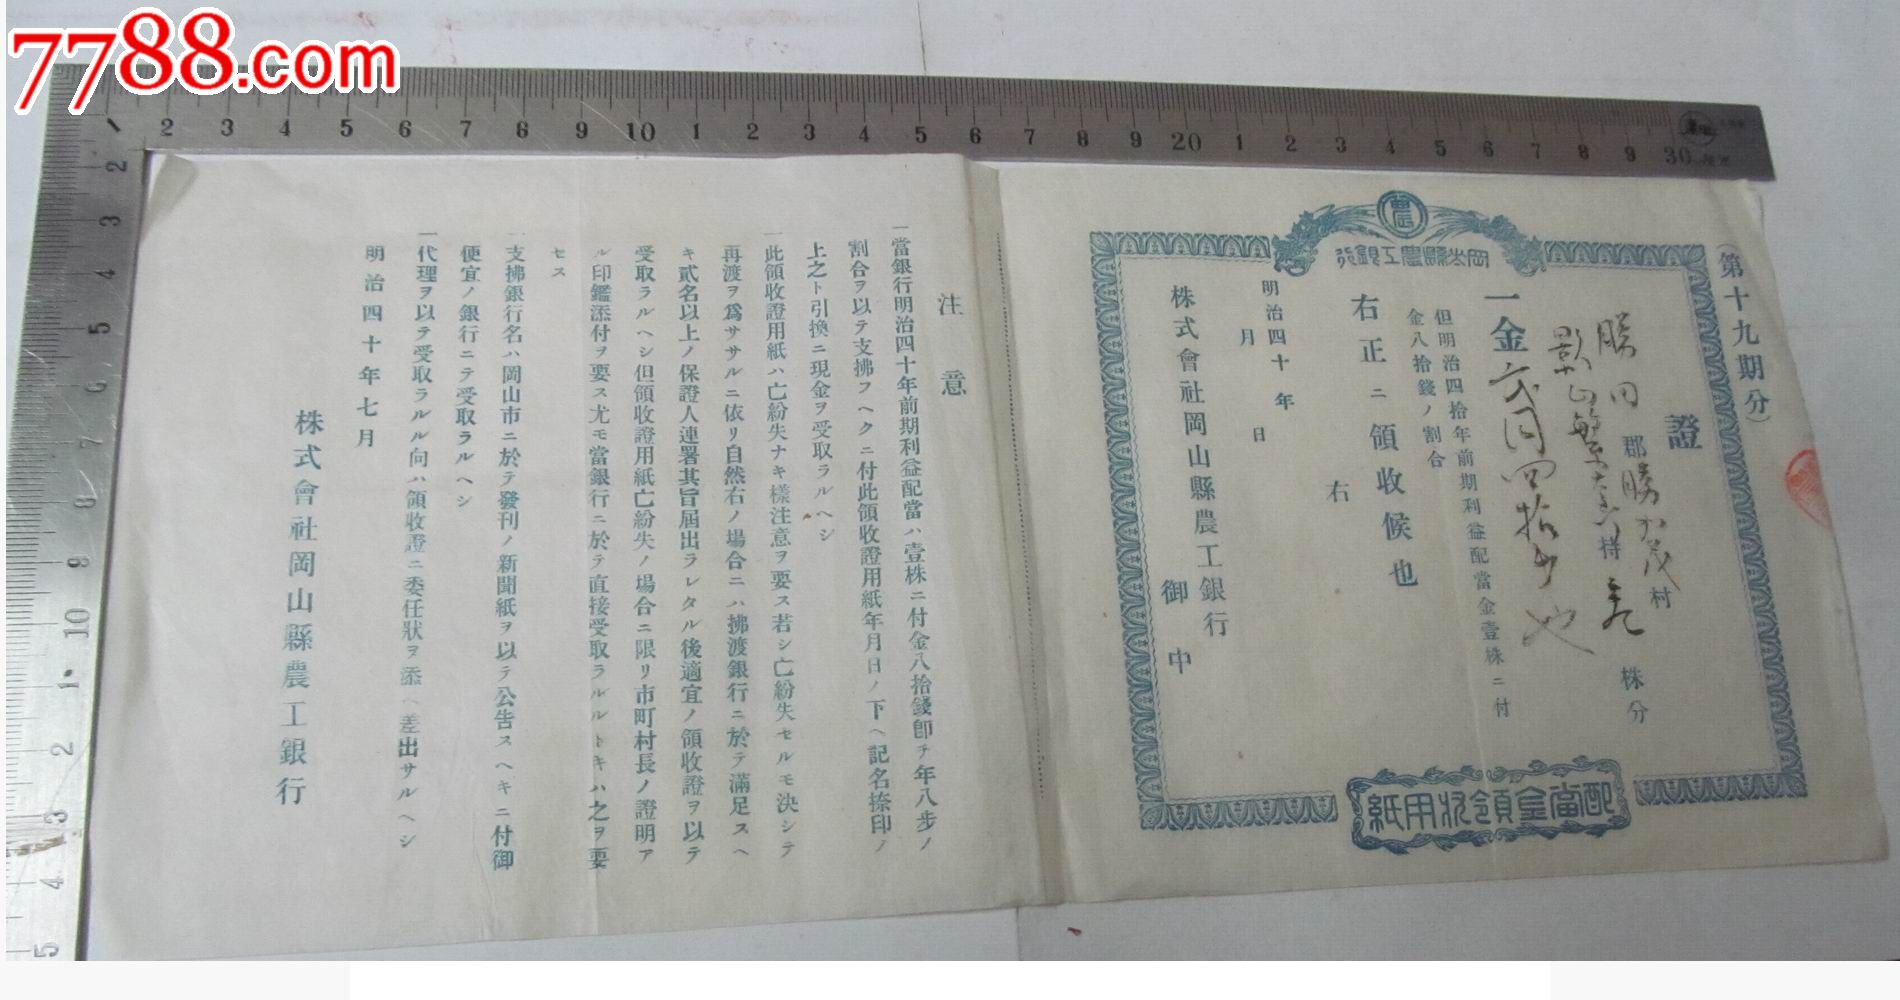 7788.com
1 2 3 4 5 6 7 8 9 10 1 2 3 4 5 6 7 8 9 20 1 2 3 4 5 6 7 8 9 30
2
3
4
5
6
7
8
9
10
1
2
3
4
5
(第十九期分)
證
勝田郡勝加茂村
持 株分
一金弐円四拾銭也
但明治四拾年前期利益配當金壹株ニ付
金八拾錢ノ割合
右正ニ領收候也
右
明治四十年
月 日
株式會社岡山縣農工銀行
御中
農
岡山縣農工銀行
配當金領收用紙
注意
一當銀行明治四十年前期利益配當ハ壹株ニ付金八拾錢卽チ年八步ノ
割合ヲ以テ支拂フヘクニ付此領收證用紙年月日ノ下ヘ記名捺印ノ
上之ト引換ニ現金ヲ受取ラルヘシ
一此領收證用紙ハ亡紛失ナキ樣注意ヲ要ス若シ亡紛失セルモ決シテ
再渡ヲ爲ササルニ依リ自然右ノ場合ニハ拂渡銀行ニ於テ滿足スヘ
キ貳名以上ノ保證人連署其旨屆出ラレタル後適宜ノ領收證ヲ以テ
受取ラルヘシ但領收證用紙亡紛失ノ場合ニ限リ市町村長ノ證明ア
ル印鑑添付ヲ要ス尤モ當銀行ニ於テ直接受取ラルルトキハ之ヲ要
セス
一支拂銀行名ハ岡山市ニ於テ發刊ノ新聞紙ヲ以テ公告スヘキニ付御
便宜ノ銀行ニテ受取ラルヘシ
一代理ヲ以テ受取ラルル向ハ領收證ニ委任狀ヲ添ヘ差出サルヘシ
明治四十年七月
株式會社岡山縣農工銀行